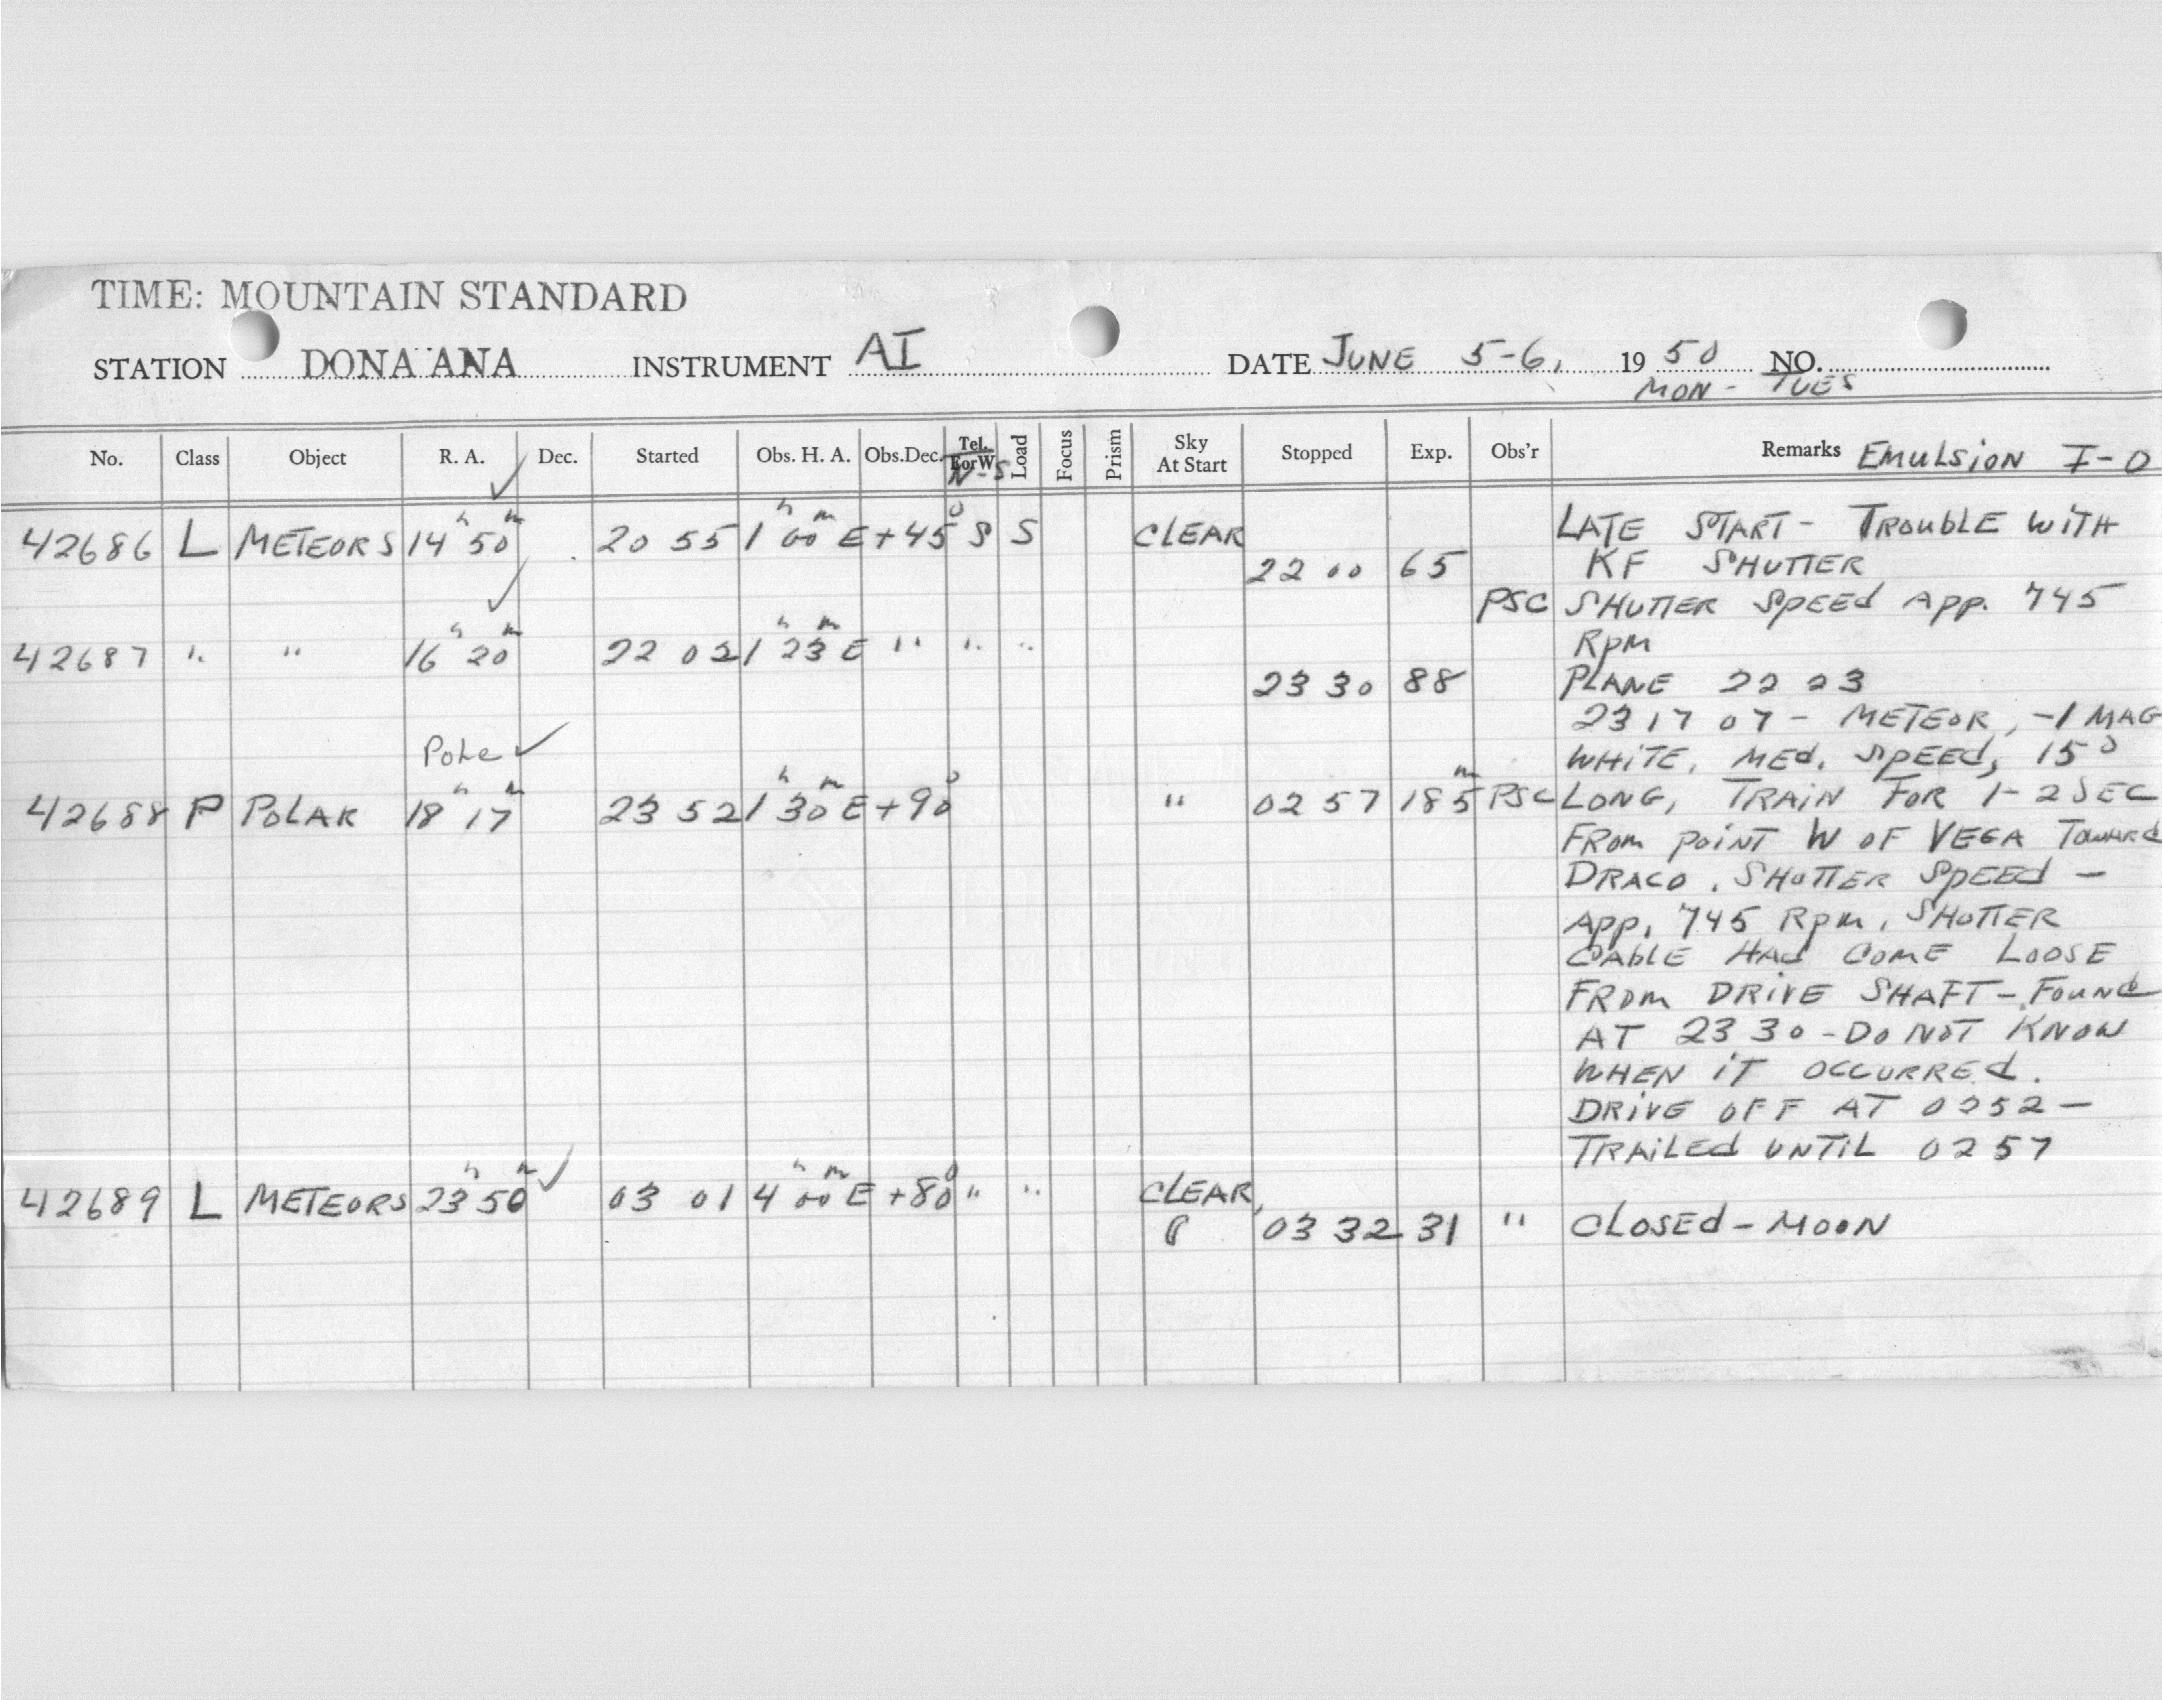 TIME: MOUNTAIN STANDARD
STATION DONA ANA INSTRUMENT AI DATE JUNE 5-6, 19 50 NO.
MON - TUES
No. Class Object R. A. Dec. Started Obs. H. A. Obs.Dec. Tel. EorW N-S Load Focus Prism Sky At Start Stopped Exp. Obs'r Remarks EMULSION I-O
42686 L METEORS 14h 50m ✓ 20 55 1h 00m E +45° S S CLEAR LATE START - TROUBLE WITH
22 00 65 KF SHUTTER
PSC SHUTTER SPEEd App. 745
42687 " " 16h 20m ✓ 22 02 1h 23m E " " " RPM
23 30 88 PLANE 22 23
23 17 07 - METEOR, -1 MAG
Pole ✓ WHITE, MEd. SPEEd, 15°
42688 P POLAR 18h 17m 23 52 1h 30m E +90° " 02 57 185m PSC LONG, TRAIN FOR 1-2 SEC
FROM POINT W OF VEGA TOWARd
DRACO. SHUTTER SPEEd -
App. 745 RPM. SHUTTER
CABLE HAd COME LOOSE
FROM DRIVE SHAFT - FOUNd
AT 23 30 - DO NOT KNOW
WHEN IT OCCURREd.
DRIVE OFF AT 0252 -
TRAILEd UNTIL 0257
42689 L METEORS 23h 50m ✓ 03 01 4h 00m E +80° " " CLEAR,
03 32 31 " CLOSEd - MOON